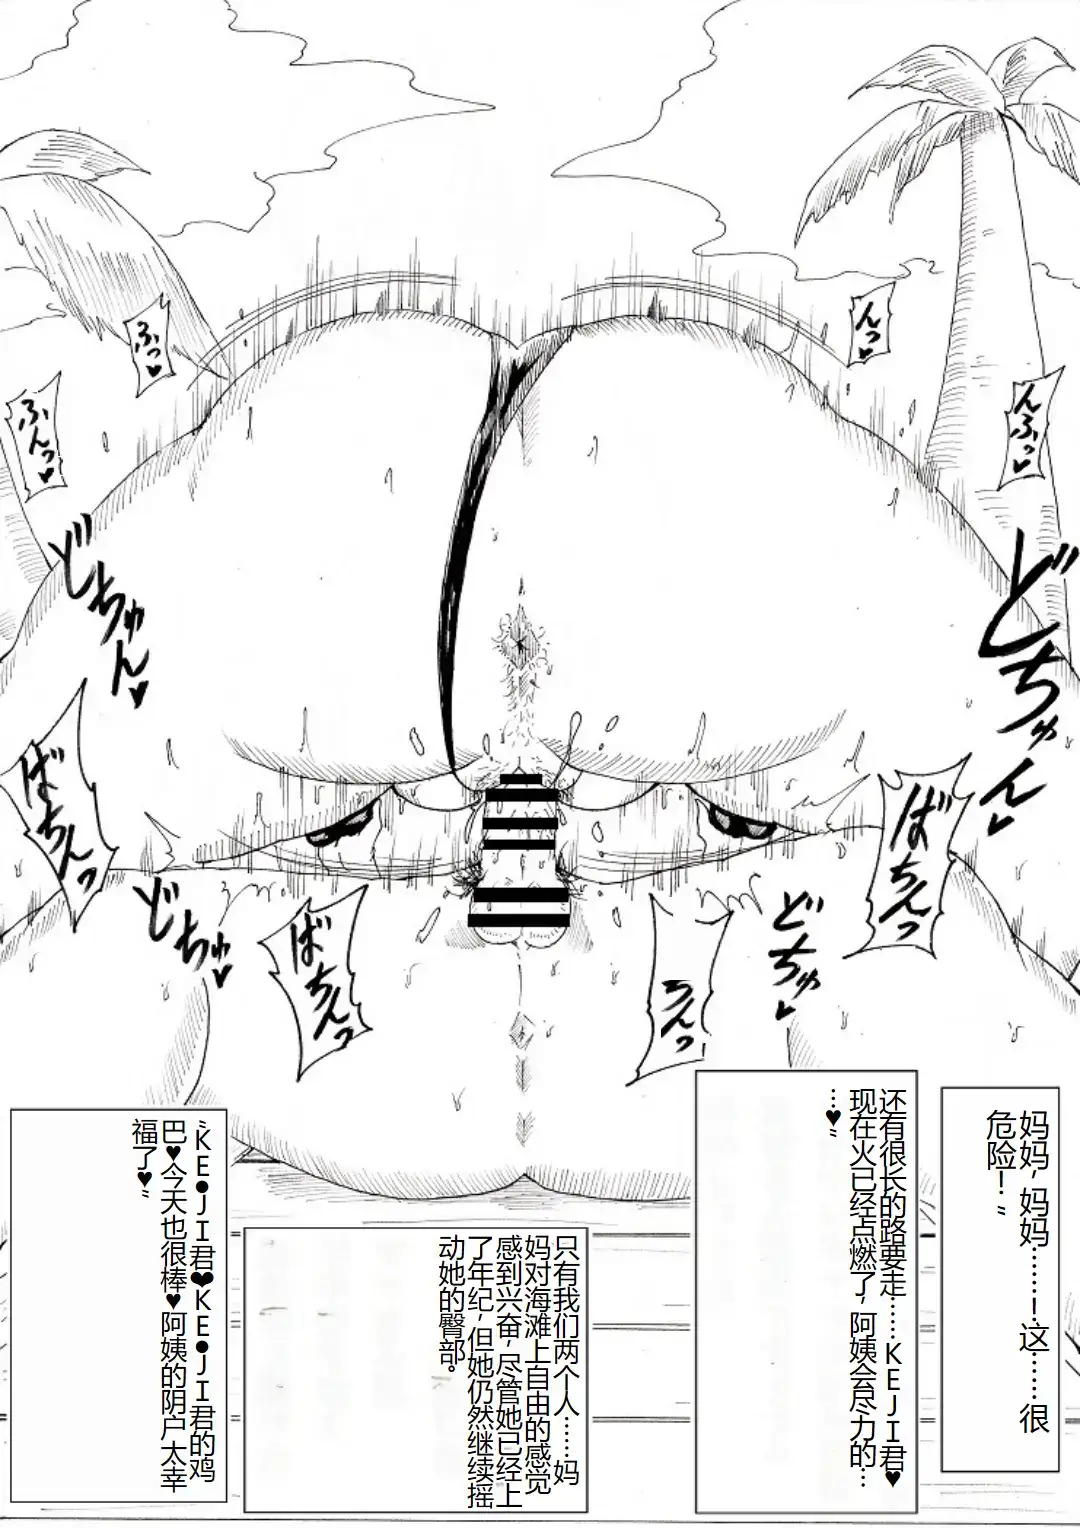 んっ♥
ふっ♥
んふっ♥
ふんっ♥
どちゅん♥
どちゅん♥
ばちんっ
ばちんっ
どちゅ♥
どちゅ♥
ばちんっ
ちんっ
妈妈,妈妈……!这……很
危险!〟
还有很长的路要走……KEJI君♥
现在火已经点燃了,阿姨会尽力的…
…♥〟
只有我们两个人……妈
妈对海滩上自由的感觉
感到兴奋,尽管她已经上
了年纪,但她仍然继续摇
动她的臀部。
〝KE●JI君❤KE●JI君的鸡
巴♥今天也很棒♥阿姨的阴户太幸
福了♥〟